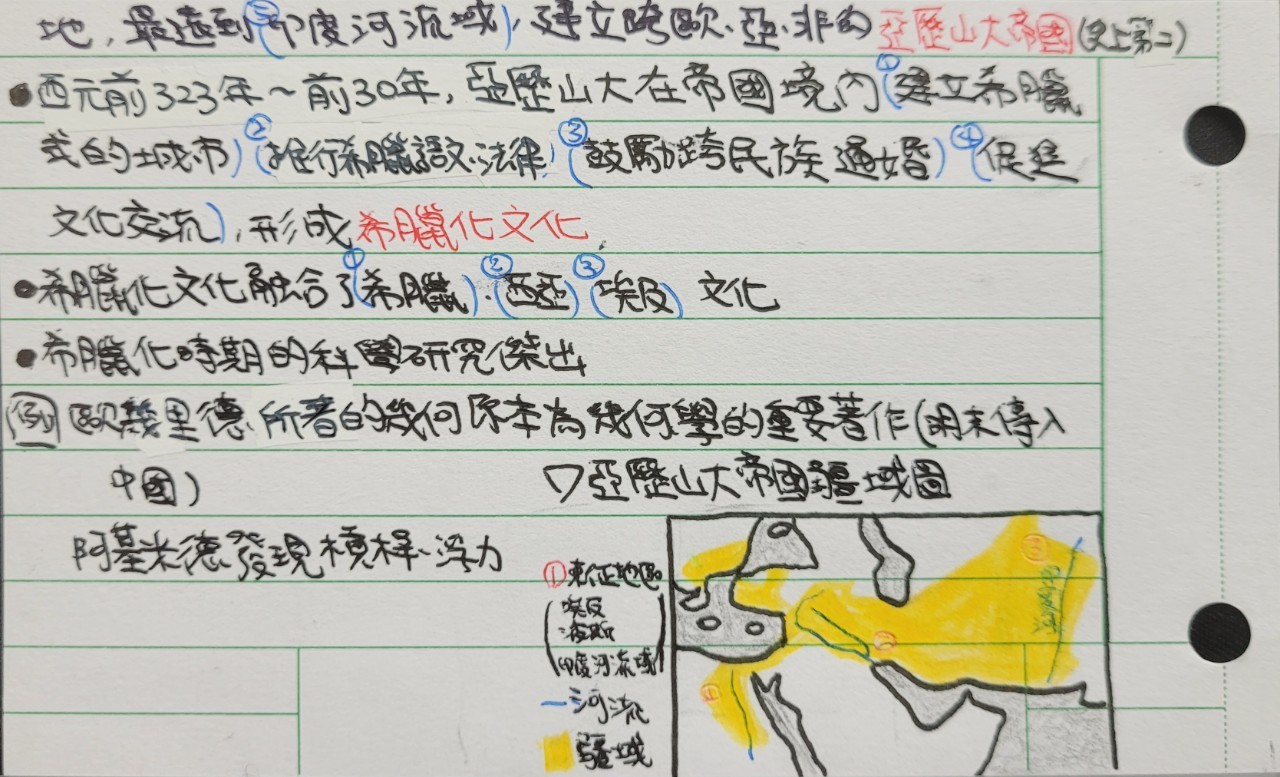 地,最遠到③(印度河流域),建立跨歐、亞、非的亞歷山大帝國(史上第二)
●西元前323年~前30年,亞歷山大在帝國境內①(建立希臘
式的城市)②(推行希臘語文、法律)③(鼓勵跨民族通婚)④(促進
文化交流),形成希臘化文化
●希臘化文化融合了①(希臘)、②(西亞)③(埃及)文化
●希臘化時期的科學研究傑出
例 歐幾里德所著的幾何原本為幾何學的重要著作(明末傳入
中國)
▽亞歷山大帝國疆域圖
阿基米德發現槓桿、浮力
①東征地區
(埃及
波斯
印度河流域)
—河流
疆域